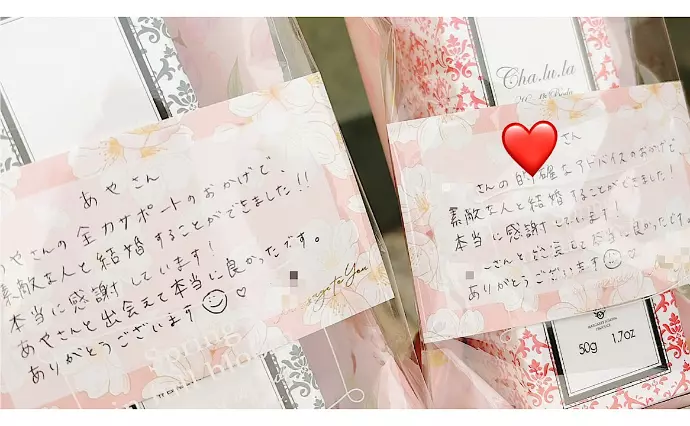 あやさん
あやさんの全力サポートのおかげで、
素敵な人と結婚することができました!!
本当に感謝しています!
あやさんと出会えて本当に良かったです。
ありがとうございます
Cha.lu.la
さん
さんの的確なアドバイスのおかげで、
素敵な人と結婚することができました!
本当に感謝しています!
さんと出会えて本当に良かったです。
ありがとうございます
50g 1.7oz